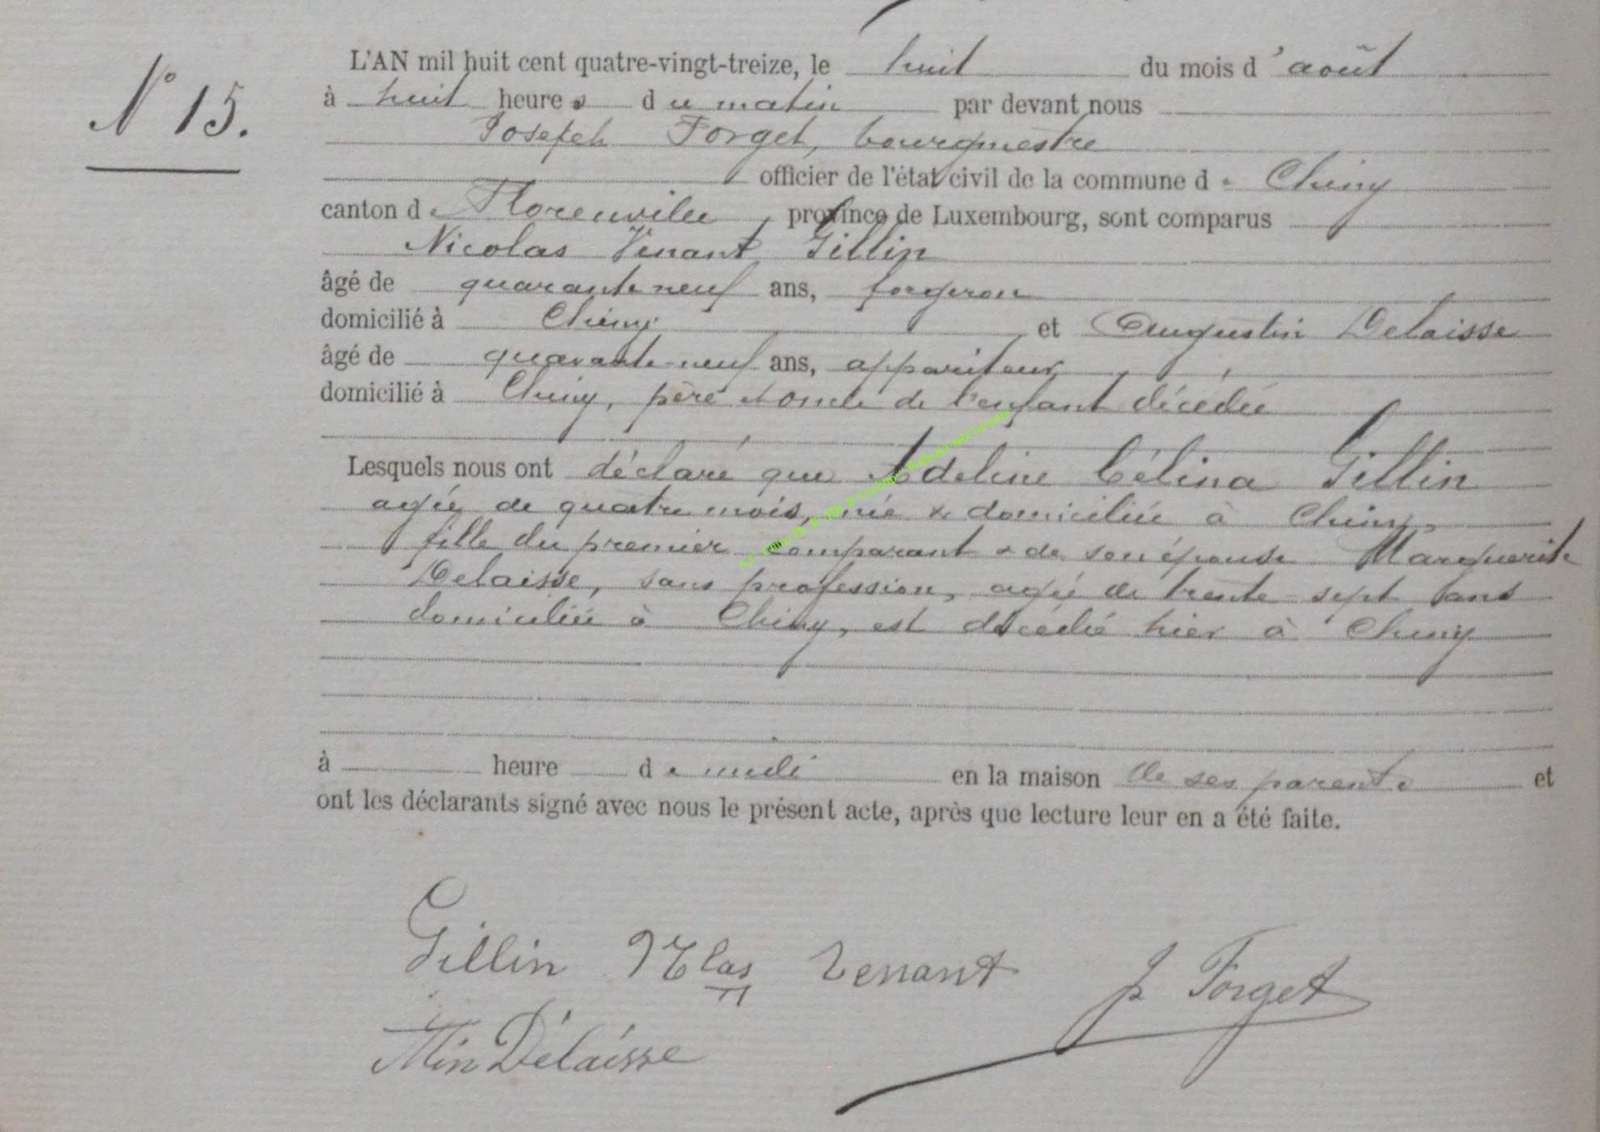 N° 15.
L'AN mil huit cent quatre-vingt-treize, le huit du mois d'août
à huit heures du matin par devant nous
Joseph Forget, bourgmestre
officier de l'état civil de la commune de Chiny
canton de Florenville, province de Luxembourg, sont comparus
Nicolas Venant Gillin
âgé de quarante neuf ans, forgeron
domicilié à Chiny et Augustin Delaisse
âgé de quarante-neuf ans, appariteur,
domicilié à Chiny, père et oncle de l'enfant décédée
Lesquels nous ont déclaré que Adeline Célina Gillin
agée de quatre mois, née & domiciliée à Chiny,
fille du premier comparant & de son épouse Marguerite
Delaisse, sans profession, agée de trente-sept ans
domiciliée à Chiny, est décédée hier à Chiny
à heure de midi en la maison de ses parents et
ont les déclarants signé avec nous le présent acte, après que lecture leur en a été faite.
Gillin Nclas Venant J Forget
Atin Délaisse